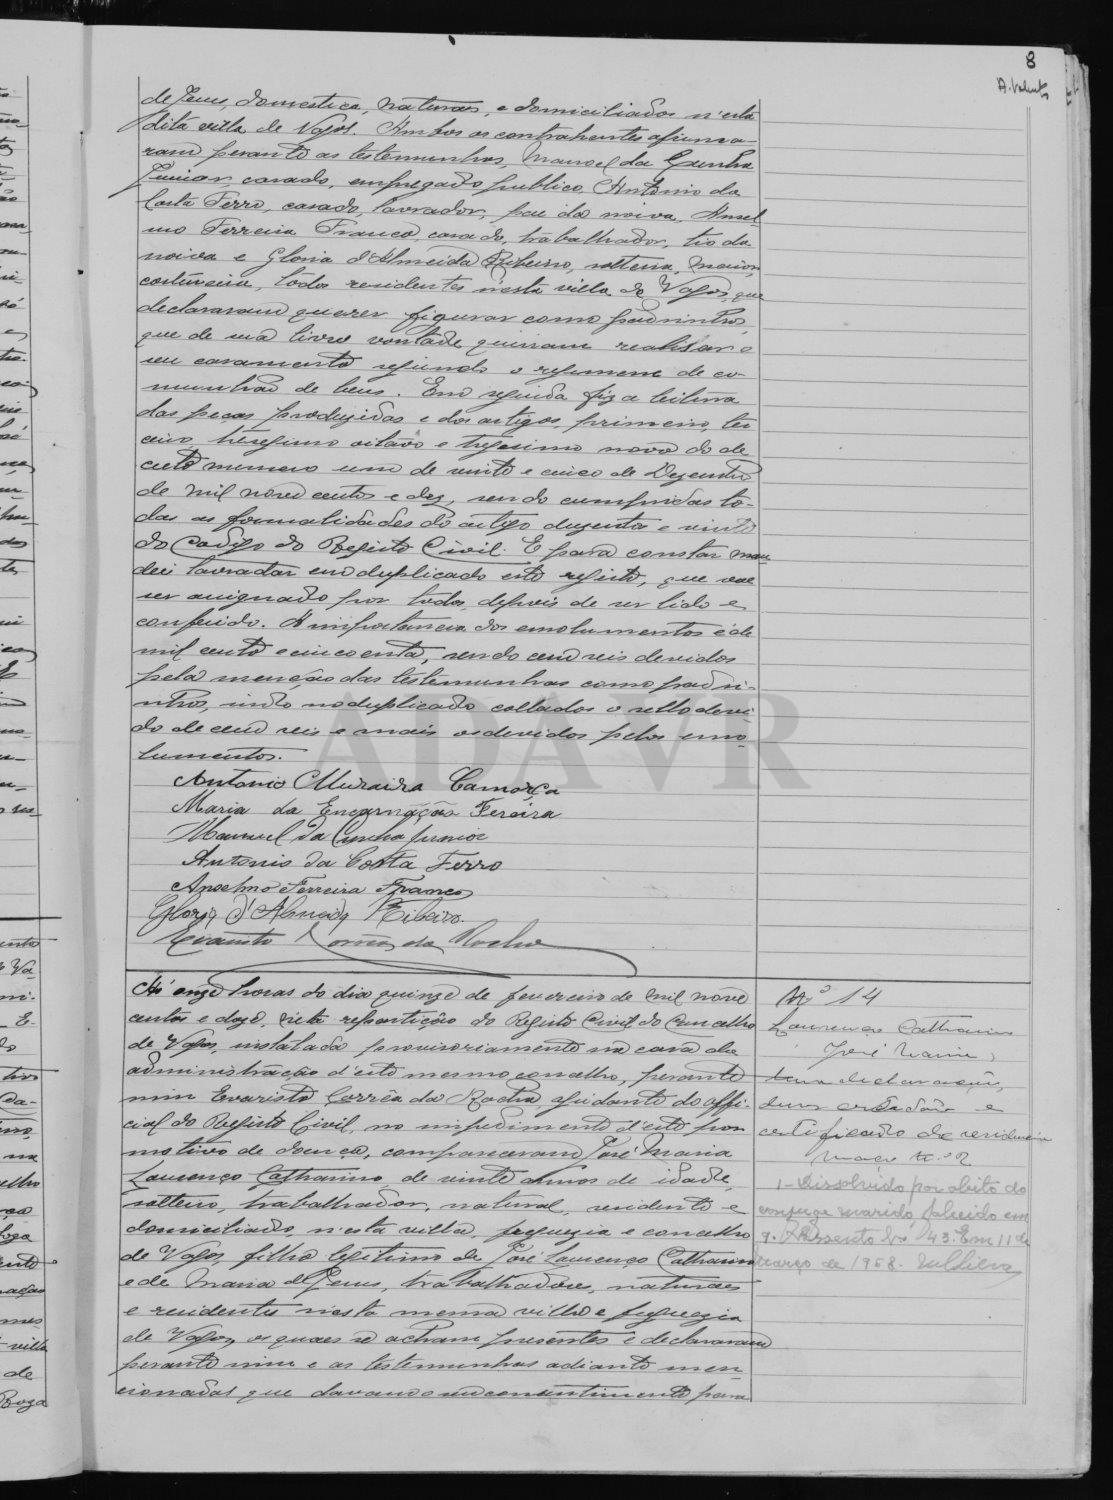 8
de Jesus, domestica, naturaes, e domiciliados n'esta
dita villa de Vagos. Ambos os contrahentes afirma-
ram perante as testemunhas, Manoel da Cunha
Junior, casado, empregado publico, Antonio da
Costa Ferro, casado, lavrador, pae da noiva, Ansel-
mo Ferreira Franco, casado, trabalhador, tio da
noiva e Gloria d'Almeida Ribeiro, solteira, maior,
costureira, todos residentes n'esta villa de Vagos, que
declararam querer figurar como padrinhos,
que de sua livre vontade queriam realisar o
seu casamento segundo o regimen de co-
munhão de bens. Em seguida fiz a leitura
das peças produzidas e dos artigos, primeiro, ter
ceiro, trigesimo oitavo e trigesimo nono do de
creto numero um de vinte e cinco de Dezembro
de mil nove centos e dez, sendo cumpridas to-
das as formalidades do artigo duzentos e vinte
do Codigo do Registo Civil. E para constar man
dei lavrar em duplicado este registo, que vae
ser assignado por todos, depois de ser lido e
conferido. A importancia dos emolumentos é de
mil cento e cincoenta, sendo cem reis devidos
pela menção das testemunhas como padri-
nhos, indo no duplicado collados o sello devi-
do de cem reis e mais os devidos pelos emo-
lumentos.
ADAVR
Antonio Camorça
Maria da Encarnação Fereira
Manuel da Cunha Junior
Antonio da Costa Ferro
Anselmo Ferreira Franco
Gloria d'Almeida Ribeiro.
Evaristo Corrêa da Rocha
Ás onze horas do dia quinze de fevereiro de mil nove
centos e doze, n'esta repartição do Registo Civil do Concelho
de Vagos, instalada provisoriamente na casa da
administração d'este mesmo concelho, perante
mim Evaristo Corrêa da Rocha ajudante do offi-
cial do Registo Civil, no impedimento d'este por
motivo de doença, compareceram José Maria
Lourenço Catharino, de vinte annos de idade,
solteiro, trabalhador, natural, residente e
domiciliado n'esta villa, freguezia e concelho
de Vagos, filho legitimo de José Lourenço Catharino
e de Maria de Jesus, trabalhadores, naturaes
e residentes n'esta mesma villa e freguezia
de Vagos, os quaes se acham presentes e declararam
perante mim e as testemunhas adiante men
cionadas que davam o seu consentimento para
Nº 14
Lourenço Catharino
José Maria,
declaração,
certidão e
certificado de residencia
maço n.º 2
1- Dissolvido por obito do
conjuge marido, falecido em
Assento Nº 43. Em 11 de
Março de 1958.